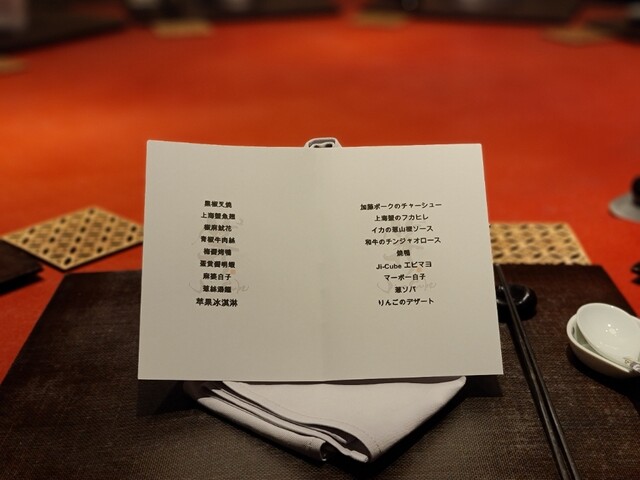 黒椒叉燒
上海蟹魚翅
椒麻魷花
青椒牛肉絲
梅醤烤鴨
蛋黄醤明蝦
麻婆白子
葱絲湯麺
苹果冰淇淋
加藤ポークのチャーシュー
上海蟹のフカヒレ
イカの葱山椒ソース
和牛のチンジャオロース
焼鴨
Ji-Cube エビマヨ
マーボー白子
葱ソバ
りんごのデザート